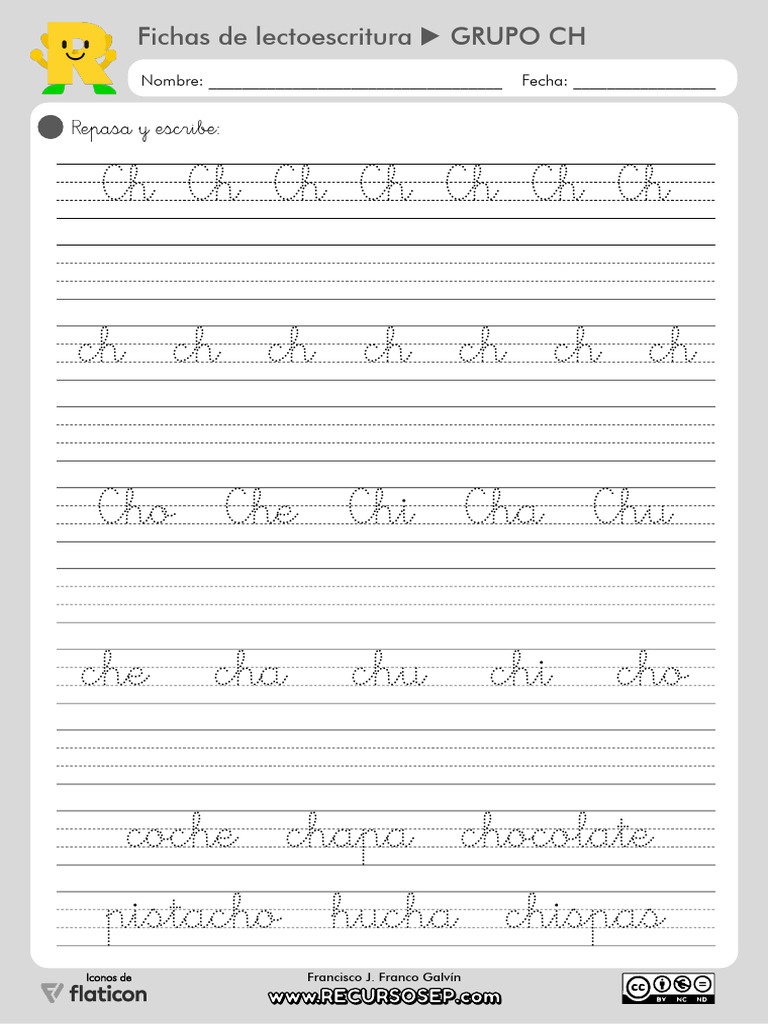 Fichas de lectoescritura ► GRUPO CH
Nombre: ________________ Fecha: ________
Repasa y escribe:
Ch Ch Ch Ch Ch Ch Ch
ch ch ch ch ch ch ch
Cho Che Chi Cha Chu
che cha chu chi cho
coche chapa chocolate
pistacho hucha chispas
Iconos de
flaticon
Francisco J. Franco Galvín
www.RECURSOSEP.com
cc BY NC ND